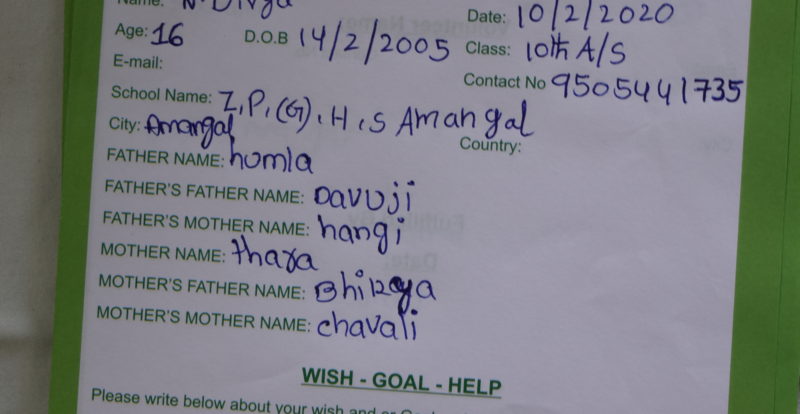 Name: N. Divya
Date: 10/2/2020
Age: 16 D.O.B 14/2/2005 Class: 10th A/S
E-mail:
Contact No 9505441735
School Name: Z.P.(G).H.S Amangal
City: Amangal
Country:
FATHER NAME: homla
FATHER'S FATHER NAME: Davuji
FATHER'S MOTHER NAME: hangi
MOTHER NAME: thara
MOTHER'S FATHER NAME:
MOTHER'S MOTHER NAME: chavali
WISH - GOAL - HELP
Please write below about your wish and